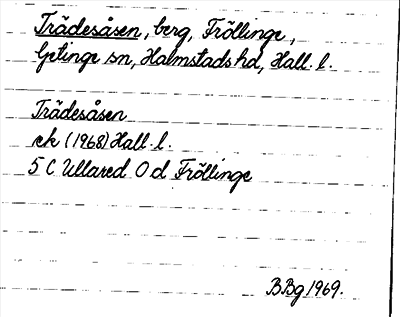 Trädesåsen, berg, Fröllinge,
Getinge sn, Halmstads hd, Hall. l.
Trädesåsen
ek (1968) Hall. l.
5 C Ullared O d Fröllinge
BBg 1969.